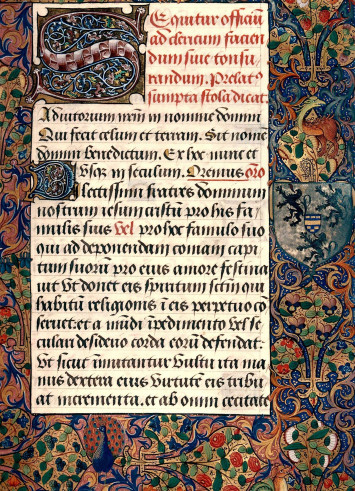 Sequitur officiū
ad clericum facien
dum siue tonsu
randum. Prelatꝰ
sumpta stola dicat.
Adiutorium nrm̄ in nomine domini
Qui fecit celum et terram. Sit nomē
domini benedictum. Ex hoc nunc et
Vsqꝫ in seculum. Oremus oro
Dilectissimi fratres dominum
nostrum iesum cristū pro his fa-
mulis suis vel pro hoc famulo suo
qui ad deponendam comam capi
tum suorū pro eius amore festina
nt Vt donet eis spiritum sctm̄ qui
habitū religionis ī eis perpetuo cō
seruet: et a mūdi īpedimento vel se
culari desiderio corda eorū defendat:
Vt sicut īmutantur Vultu ita ma
nus dextera eius Virtutē eis tribu
at incrementa. et ab omni cecitate